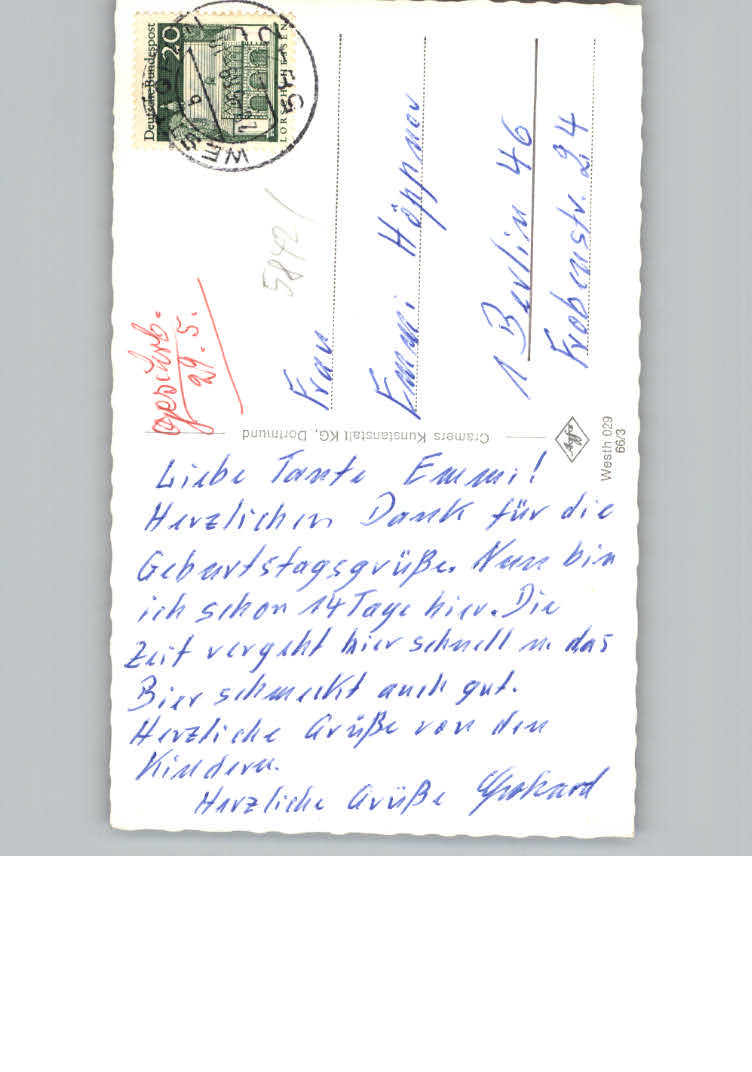 Deutsche Bundespost
20
LORSCH/HESSEN
5842/
geschrb.
29.5.
Frau
Emmi Höppner
1 Berlin 46
Frobenstr. 24
Cramers Kunstanstalt KG, Dortmund
Agfa
Westh 029
66/3
Liebe Tante Emmi!
Herzlichen Dank für die
Geburtstagsgrüße. Nun bin
ich schon 14 Tage hier. Die
Zeit vergeht hier schnell u. das
Bier schmeckt auch gut.
Herzliche Grüße von den
Kindern.
Herzliche Grüße